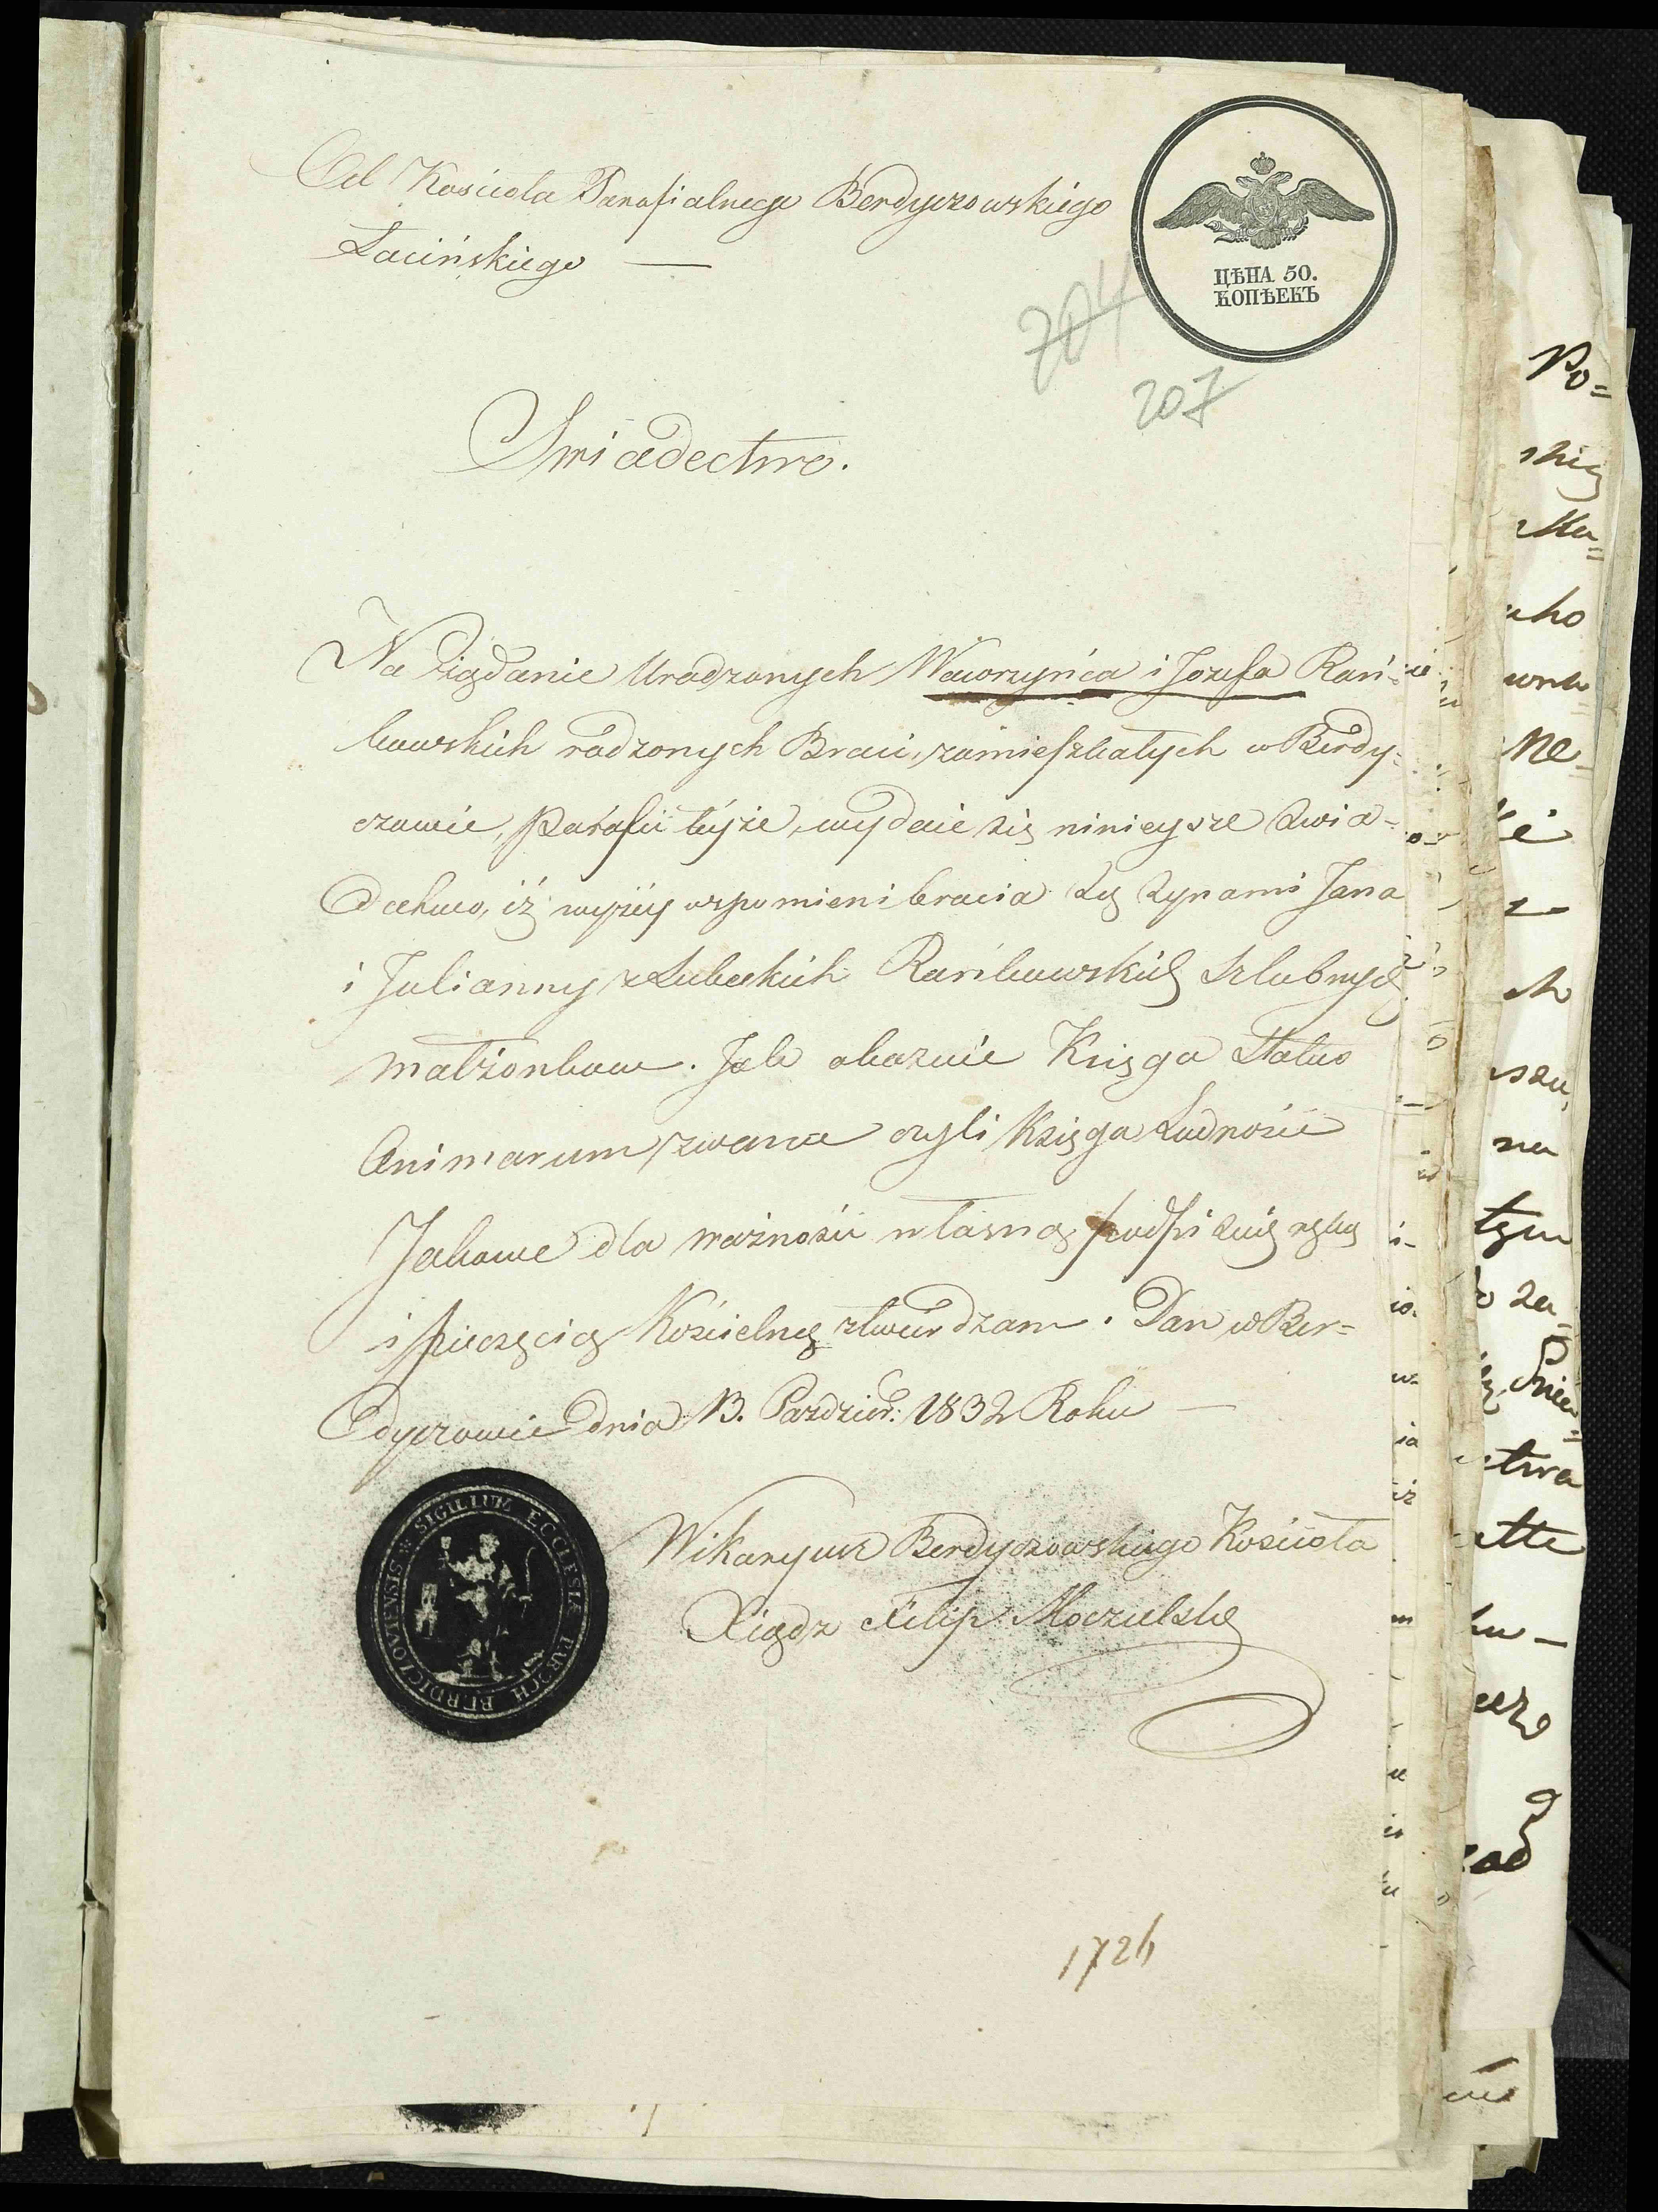 Od Kościoła Parafialnego Berdyczowskiego
Łacińskiego —
ЦѢНА 50.
КОПѢЕКЪ
704
207
Swiadectwo.
Na żądanie Urodzonych Wawrzyńca i Jozefa Rań=
kowskich rodzonych Braci, zamieszkałych w Berdy=
czowie, Parafii teyże, wydaie się ninieysze Swia=
dectwo, iż wyżey wspomieni bracia są Synami Jana
i Julianny z Łubeckich Rańkowskich Szlubnych
małżonkow. Jak okazuie Księga Status
Animarum zwana czyli Księga Ludności
Jakowe dla ważności własną podpisuię ręką
i pieczęcią Kościelną ztwierdzam. Dan w Ber=
dyczowie Dnia 13. Pazdzier: 1832 Roku —
SIGILLUM ECCLESIÆ PAROCH BERDICZOVIENSIS
Wikaryusz Berdyczowskiego Kościoła
Xiądz Filip
1724